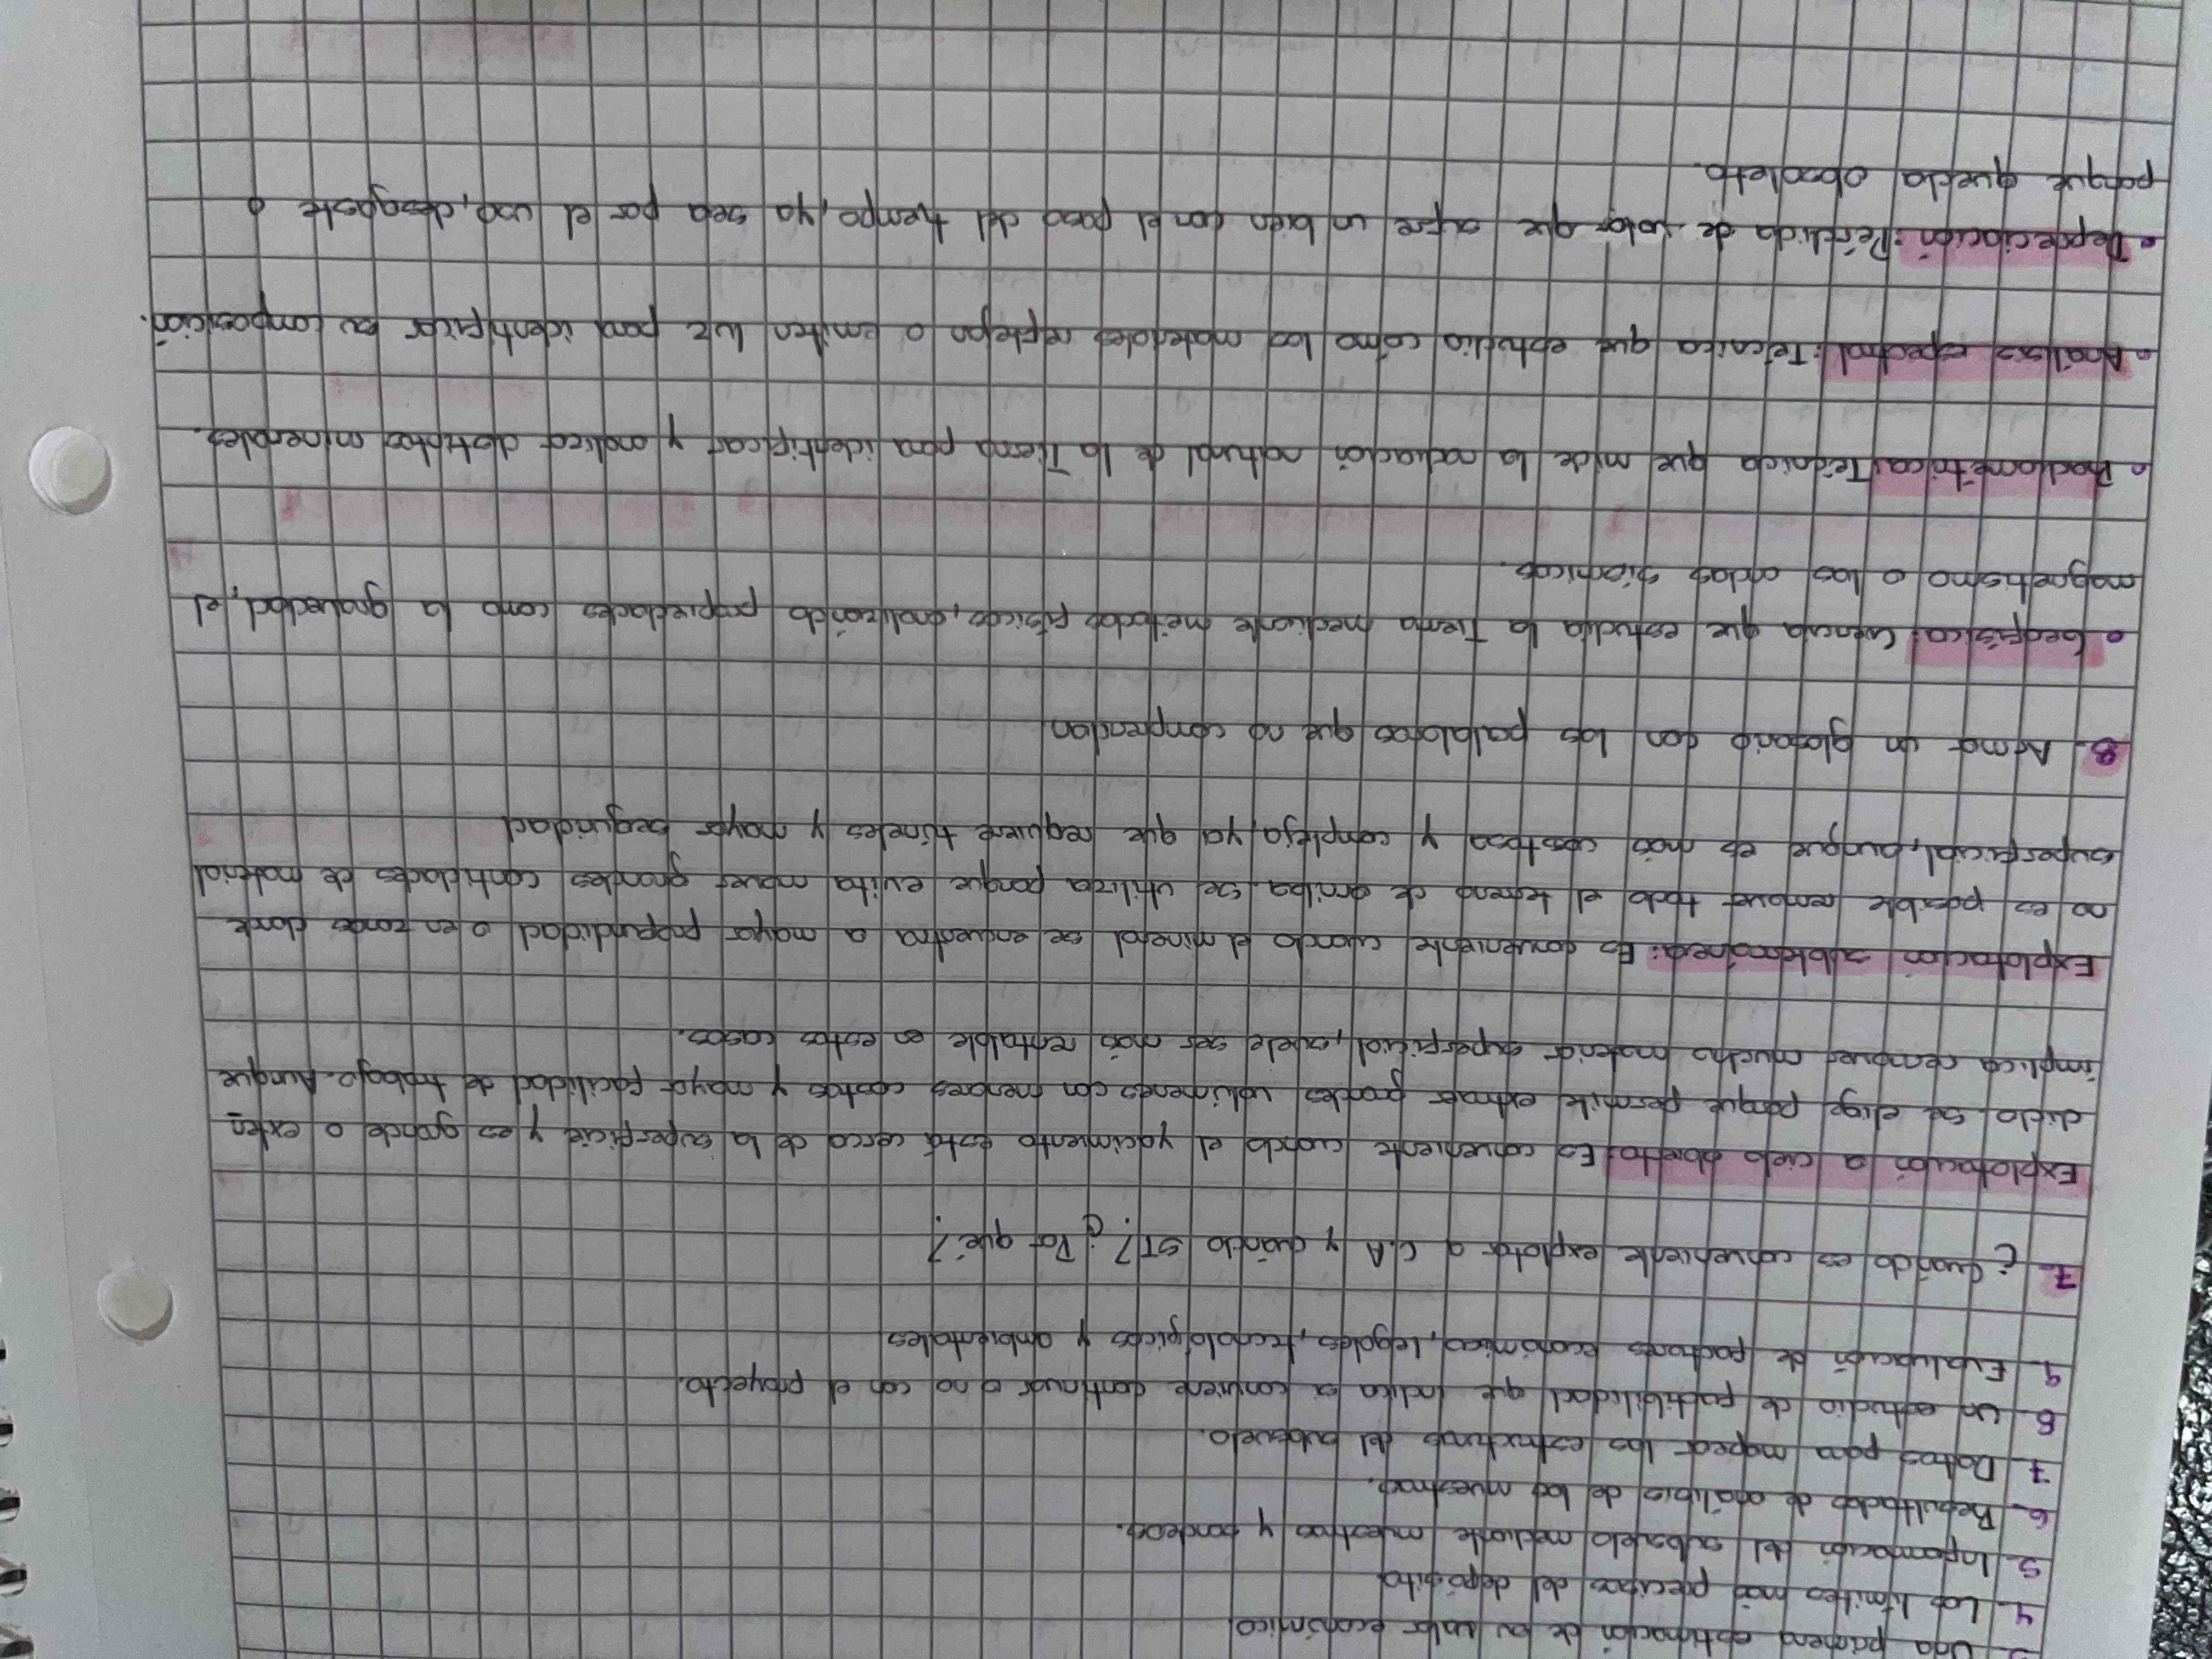 3. Una primera estimación de su valor económico
4. Los límites más precisos del depósito
5. Información del subsuelo mediante muestras y sondeos.
6. Resultados de análisis de las muestras.
7. Datos para mapear las estructuras del subsuelo.
8. Un estudio de factibilidad que indica si conviene continuar o no con el proyecto.
9. Evaluación de factores económicos, legales, tecnológicos y ambientales
7. ¿Cuándo es conveniente explotar a C.A y cuándo ST? ¿Por qué?
Explotación a cielo abierto: Es conveniente cuando el yacimiento está cerca de la superficie y es grande o exten
dido. Se elige porque permite extraer grandes volúmenes con menores costos y mayor facilidad de trabajo. Aunque
implica remover mucho material superficial, suele ser más rentable en estos casos.
Explotación subterránea: Es conveniente cuando el mineral se encuentra a mayor profundidad o en zonas donde
no es posible remover todo el terreno de arriba. Se utiliza porque evita mover grandes cantidades de material
superficial, aunque es más costosa y compleja, ya que requiere túneles y mayor seguridad
8. Armar un glosario con las palabras que no comprendan
• Geofísica: Ciencia que estudia la Tierra mediante métodos físicos, analizando propiedades como la gravedad, el
magnetismo o las ondas sísmicas.
• Radiométrica: Técnica que mide la radiación natural de la Tierra para identificar y analizar distintos minerales.
• Análisis espectral: Técnica que estudia cómo los materiales reflejan o emiten luz para identificar su composición.
• Depreciación: Pérdida de valor que sufre un bien con el paso del tiempo, ya sea por el uso, desgaste o
porque queda obsoleto.